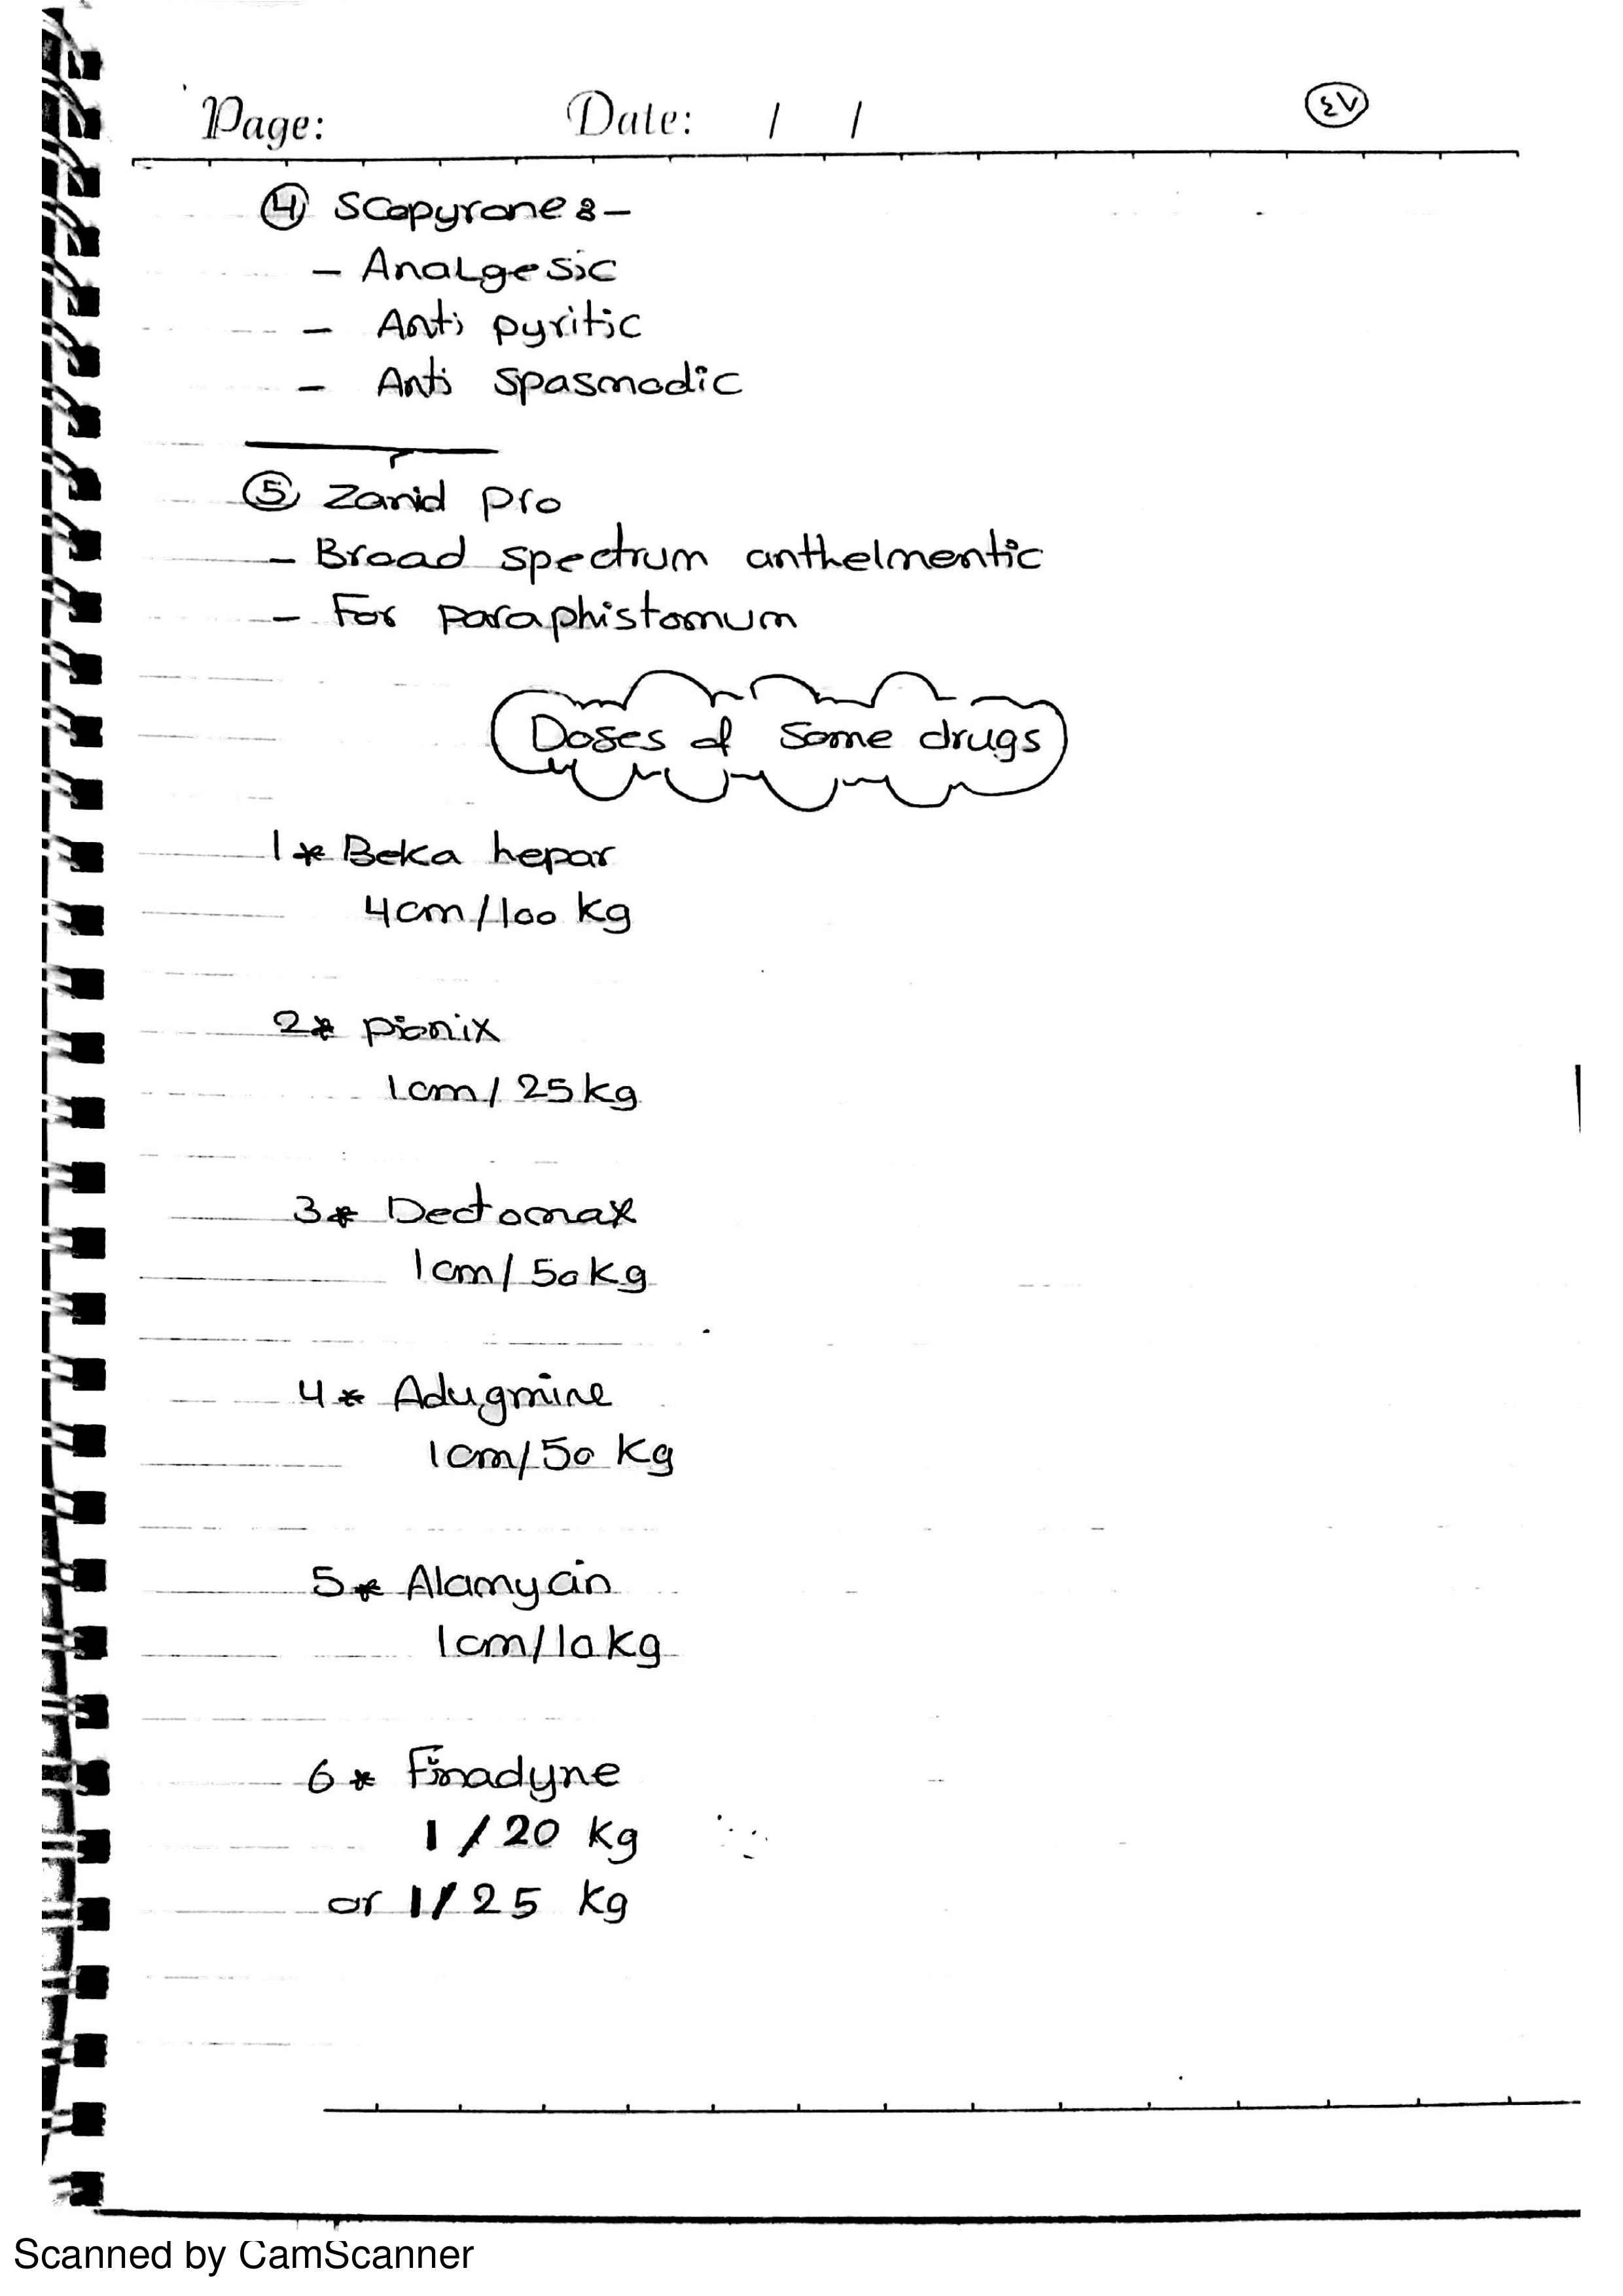 Page: Date: / / ٤٧
④ Scopyrone :-
- Analgesic
- Anti pyritic
- Anti spasmodic
⑤ Zanid pro
- Broad spectrum anthelmentic
- For paraphistomum
Doses of some drugs
1* Beka hepar
4cm/100 kg
2* pionix
1cm/25kg
3* Dectomax
1cm/50kg
4* Adugmine
1cm/50 kg
5* Alamycin
1cm/10kg
6* Finadyne
1/20 kg
or 1/25 kg
Scanned by CamScanner